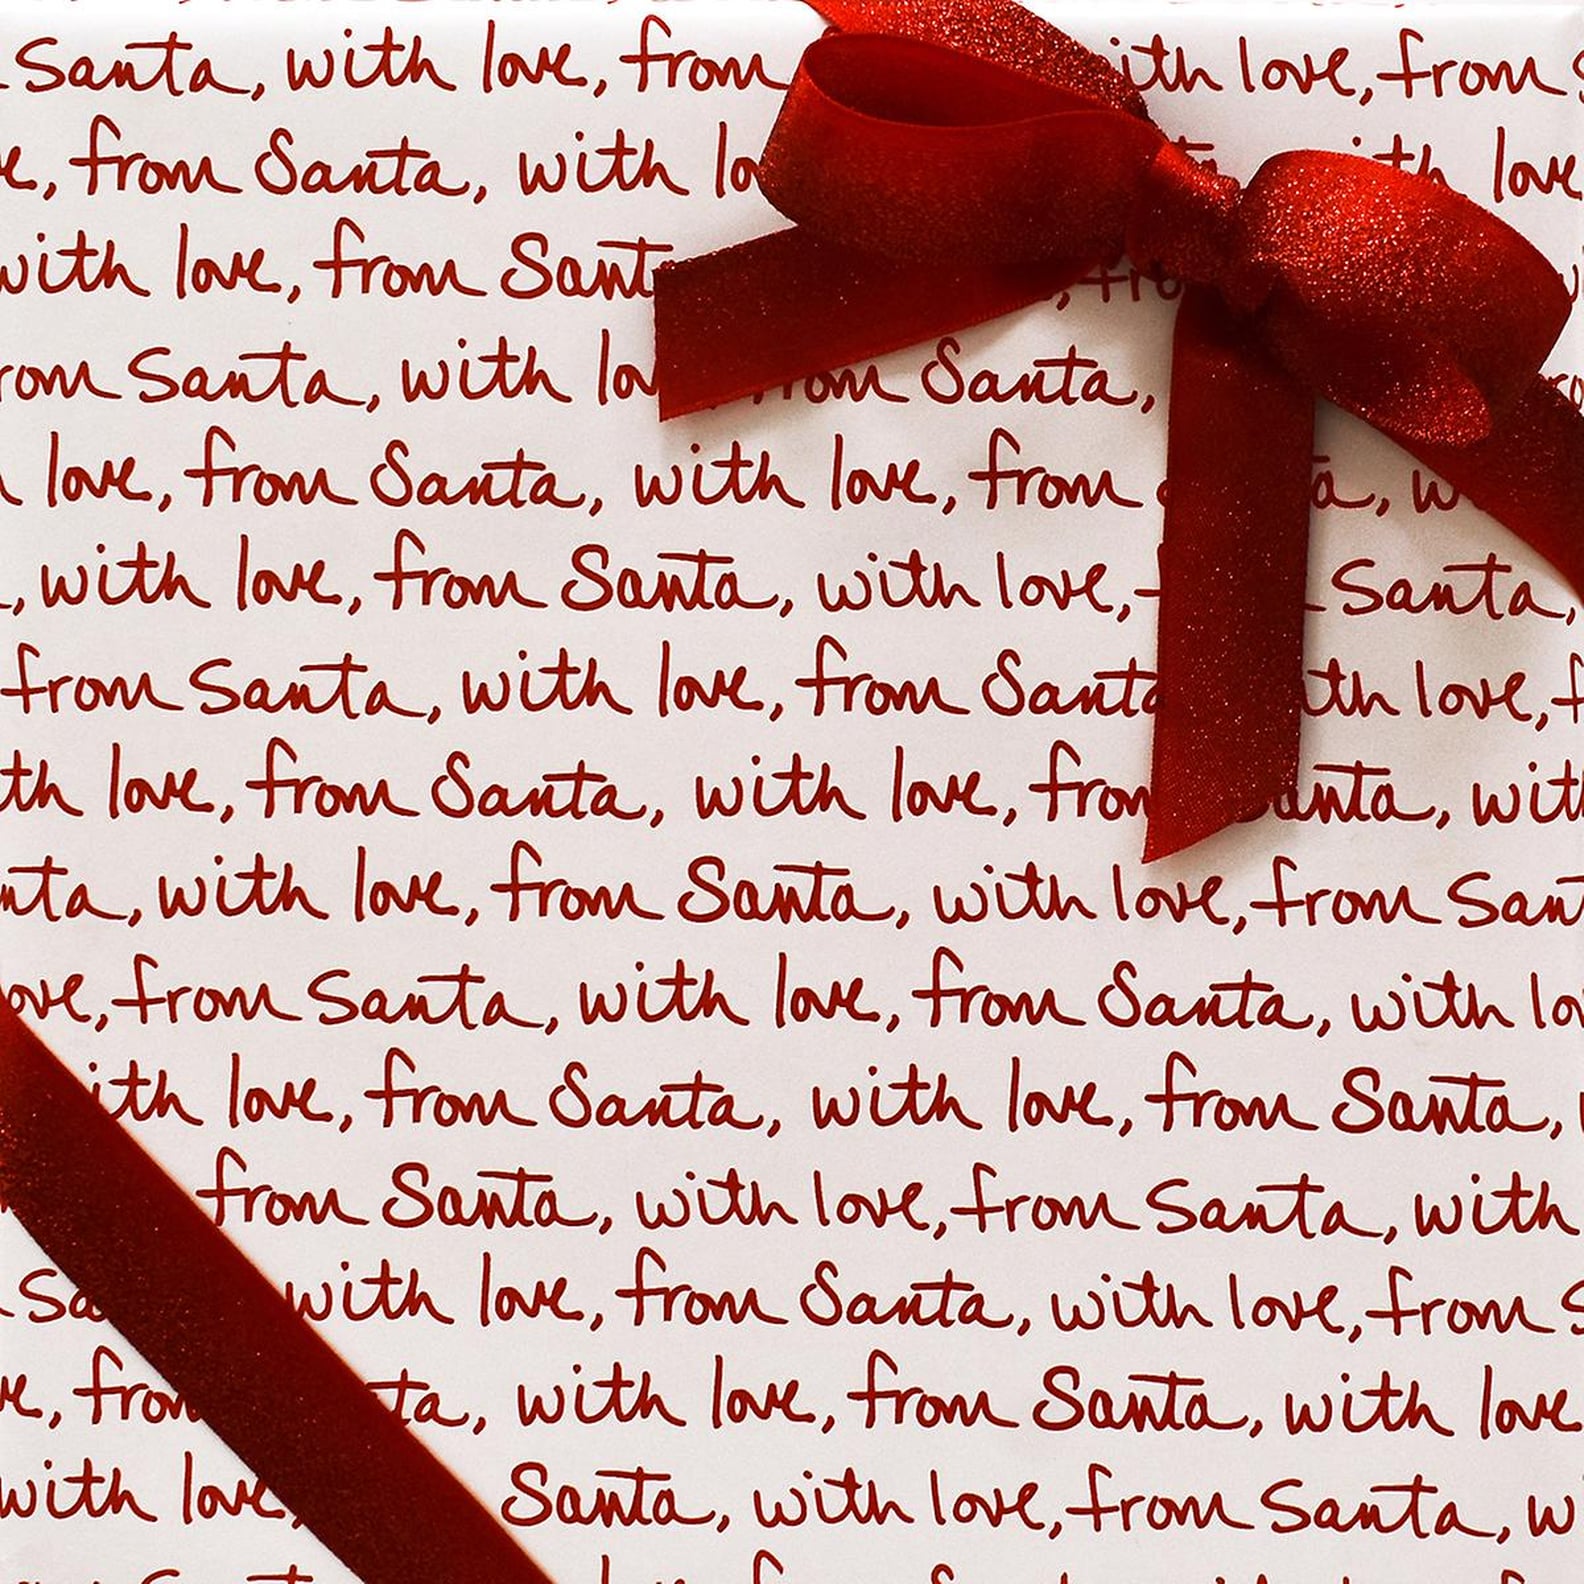 Santa, with love, from with love, from
from Santa, with love
with love, from Santa
from Santa, with from Santa,
love, from Santa, with love, from
, with love, from Santa, with love, Santa,
from Santa, with love, from Santa love,
love, from Santa, with love, from Santa, with
with love, from Santa, with love, from Santa
love, from Santa, with love, from Santa, with
with love, from Santa, with love, from Santa,
from Santa, with love, from Santa, with
with love, from Santa, with love, from
from with love, from Santa, with love
with love, Santa, with love, from Santa,